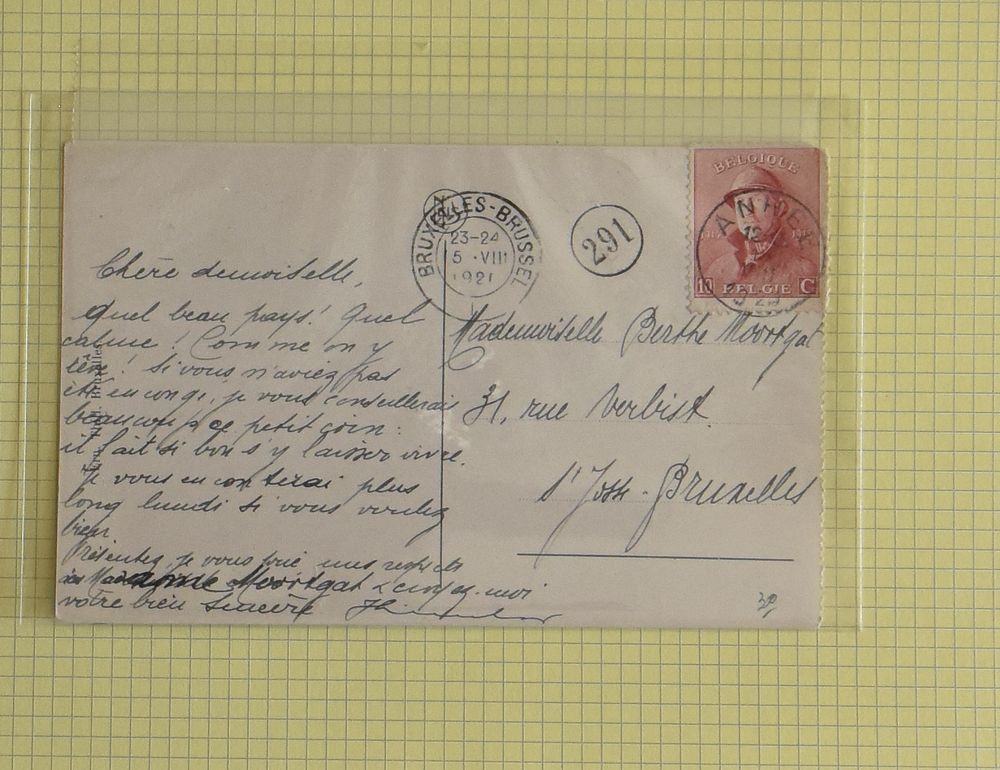 Chère demoiselle,
Quel beau pays! Quel
calme! Comme on y
rêve! Si vous n'aviez pas
été en congé, je vous conseillerais
beaucoup ce petit coin:
il fait si bon s'y laisser vivre.
Je vous en conterai plus
long lundi si vous voulez
bien
Présentez, je vous prie mes respects
à Madame Moortgat & croyez-moi
votre bien sincère
BRUXELLES-BRUSSEL
23-24
5 ·VIII
1921
291
BELGIQUE
10 BELGIË C
ANHEE
Mademoiselle Berthe Moortgat
31, rue Verbist.
St Josse-Bruxelles
Bruxelles